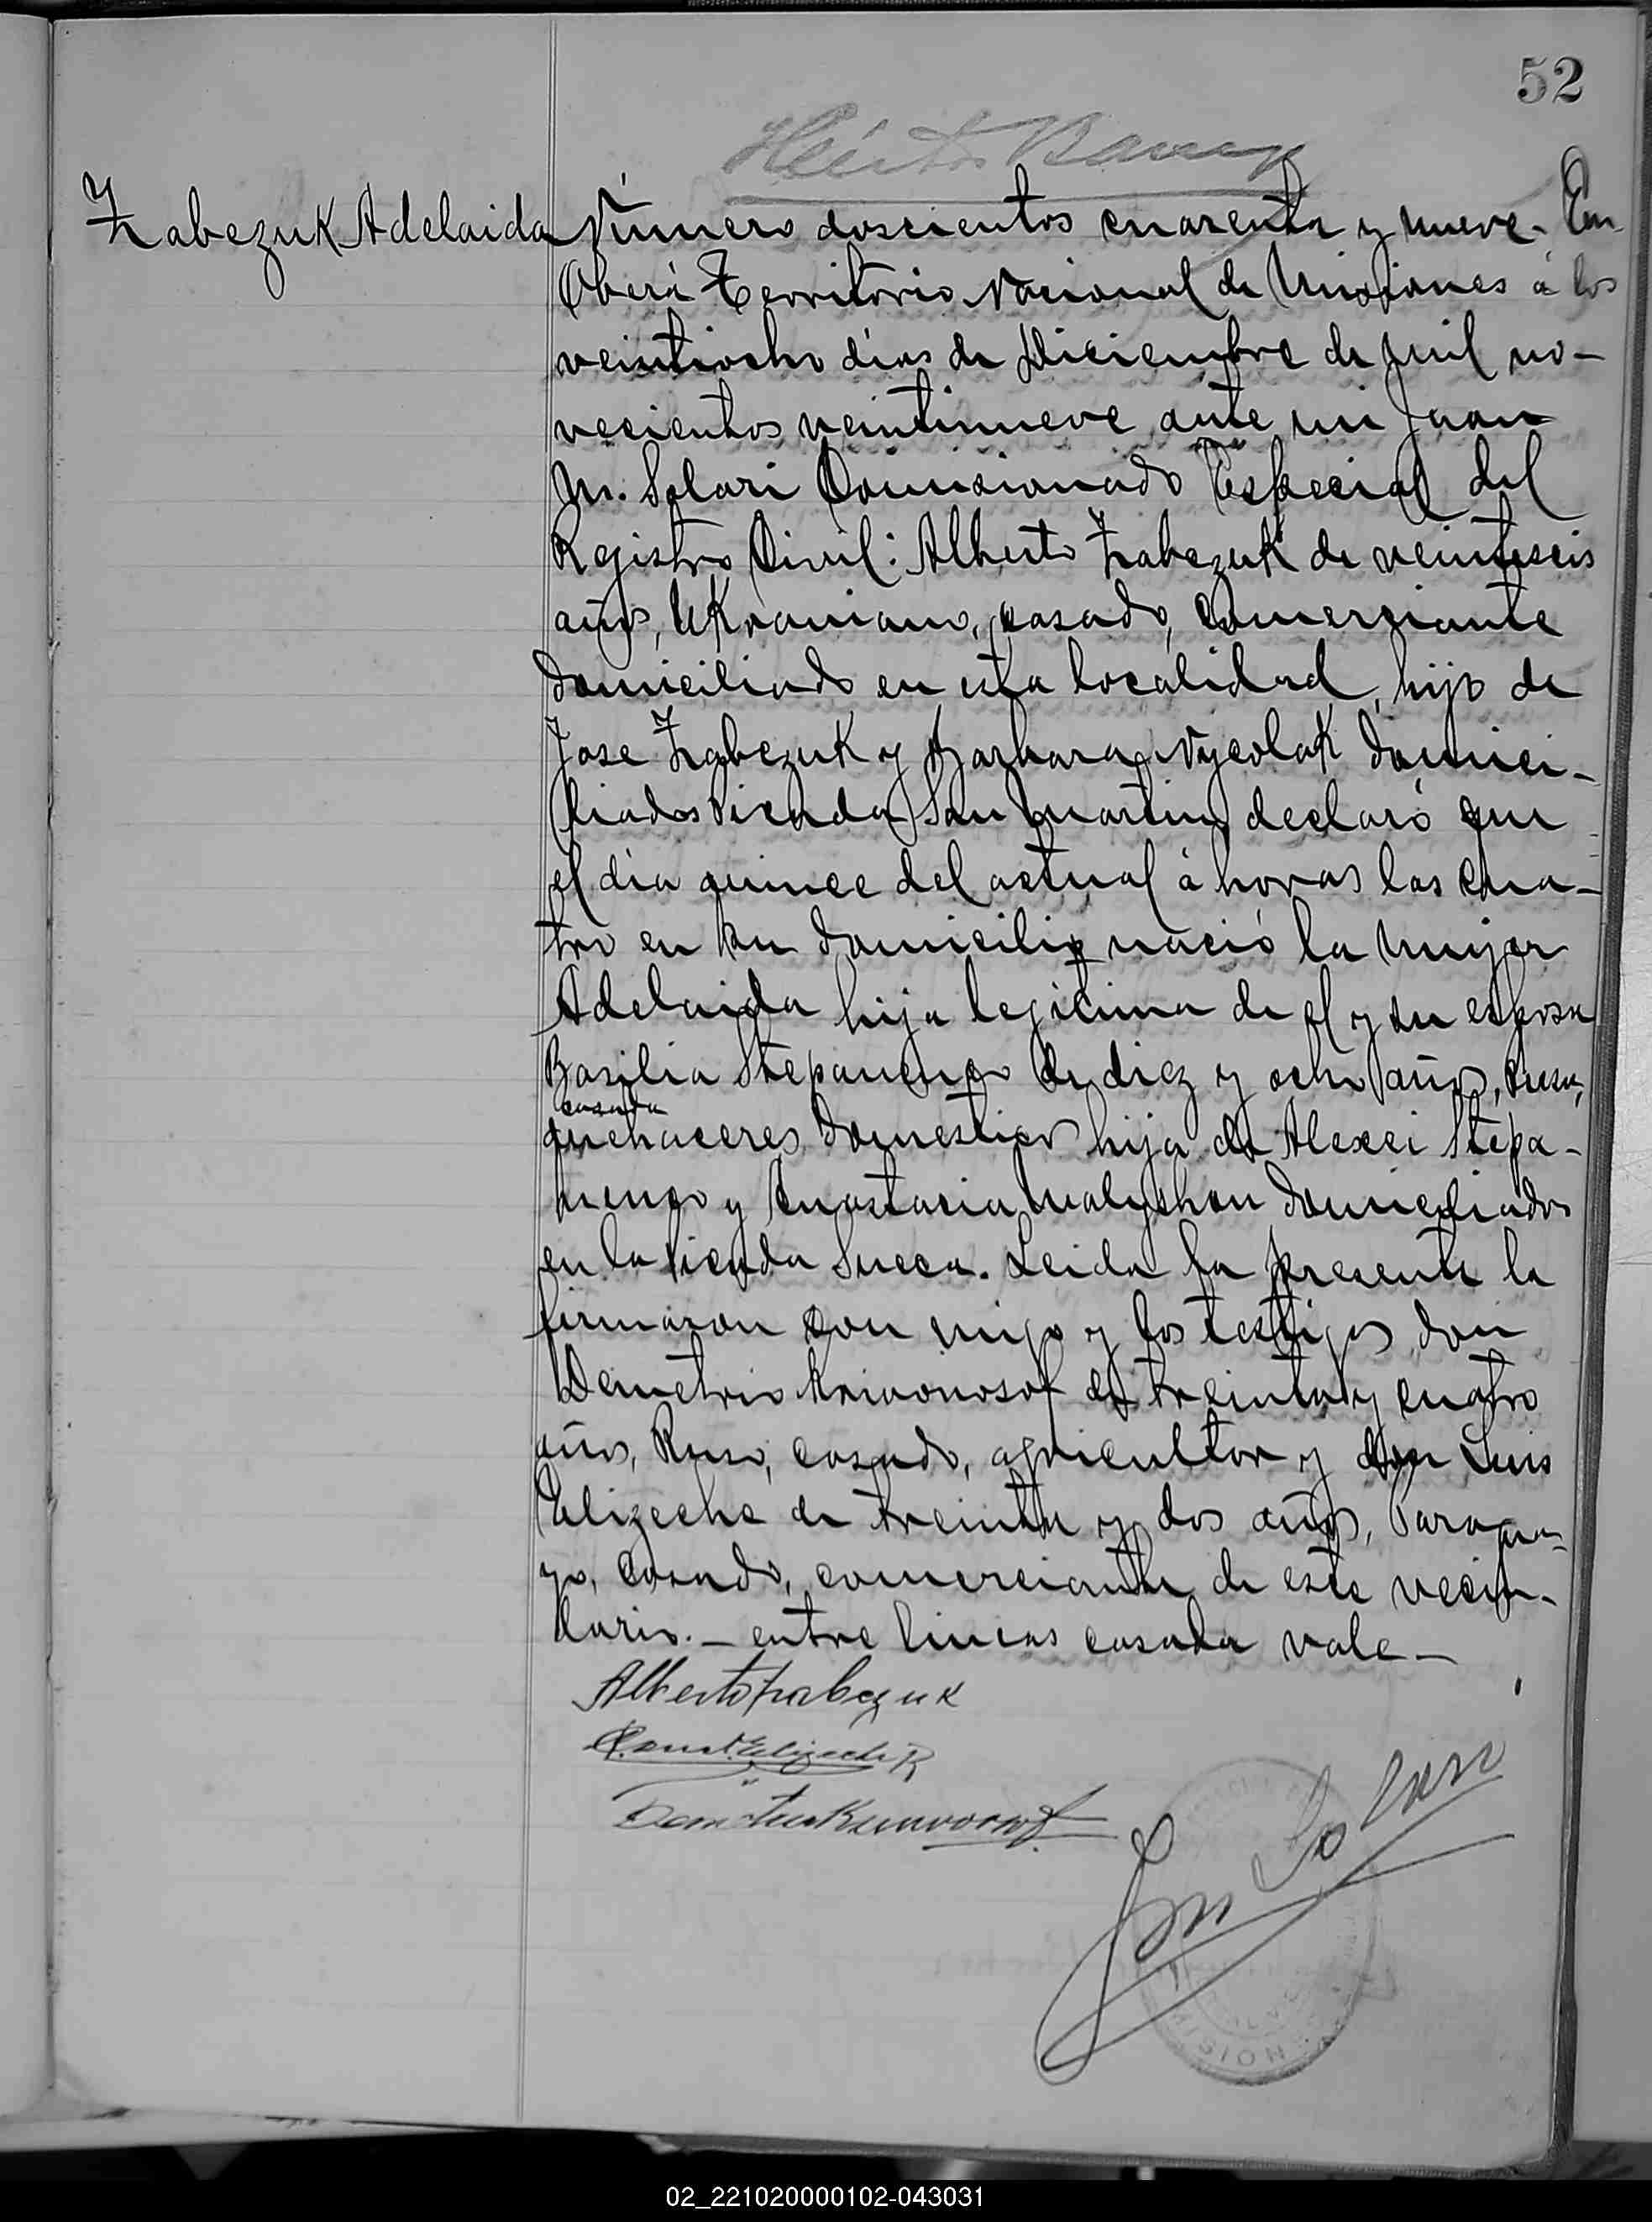 52
Zabczuk Adelaida
Número doscientos cuarenta y nueve. En
Oberá Territorio Nacional de Misiones á los
veintiocho días de Diciembre de mil no-
vecientos veintinueve ante mi Juan
M. Solari Comisionado Especial del
Registro Civil: Alberto Zabczuk de veinteseis
años, Ukraniano, casado, comerciante
domiciliado en esta localidad, hijo de
Jose Zabczuk y Barbara domici-
liados Picada San Martin, declaró que
el día quince del actual á horas las cua-
tro en su domicilio nació la mujer
Adelaida hija legitima de el y su esposa
Basilia Stepanenco de diez y ocho años, Rusa,
casada
quehaceres domesticos hija de Alexei Stepa-
nenco y Anastacia domiciliados
en la Picada Sueca. Leida la presente la
firmaron con migo y los testigos don
Demetrio Krivonosof de treinta y cuatro
años, Ruso, casado, agricultor y don Luis
Elizeche de treinta y dos años, Paragua-
yo, casado, comerciante de este vecin-
dario. — entre lineas casada vale —
Alberto Zabczuk
Elizeche R
J M Solari
MISIONES
02_221020000102-043031